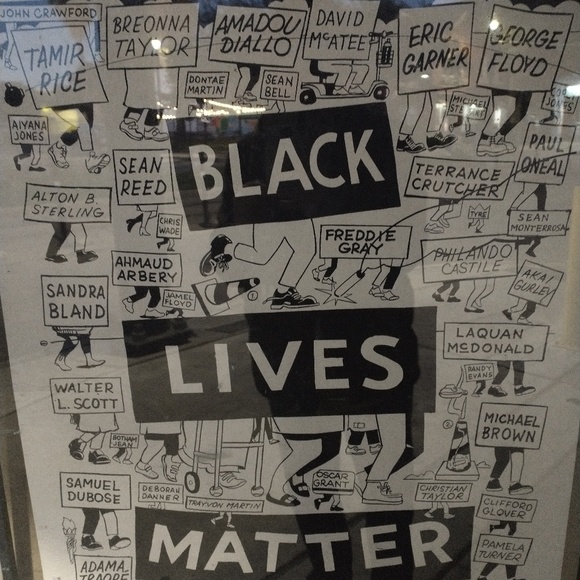 JOHN CRAWFORD
TAMIR
RICE
BREONNA
TAYLOR
AMADOU
DIALLO
DAVID
McATEE
ERIC
GARNER
GEORGE
FLOYD
DONTAE
MARTIN
SEAN
BELL
MICHAEL
JONES
AIYANA
JONES
SEAN
REED
BLACK
PAUL
ONEAL
TERRANCE
CRUTCHER
ALTON B.
STERLING
CHRIS
WADE
TYRE
SEAN
MONTERROSA
FREDDIE
GRAY
PHILANDO
CASTILE
AHMAUD
ARBERY
AKAI
GURLEY
SANDRA
BLAND
JAMEL
FLOYD
1
LIVES
LAQUAN
McDONALD
RANDY
EVANS
WALTER
L. SCOTT
2
MICHAEL
BROWN
BOTHAM
JEAN
SAMUEL
DUBOSE
DEBORAH
DANNER
TRAYVON MARTIN
OSCAR
GRANT
CHRISTIAN
TAYLOR
CLIFFORD
GLOVER
MATTER
PAMELA
TURNER
ADAMA
TRAORE